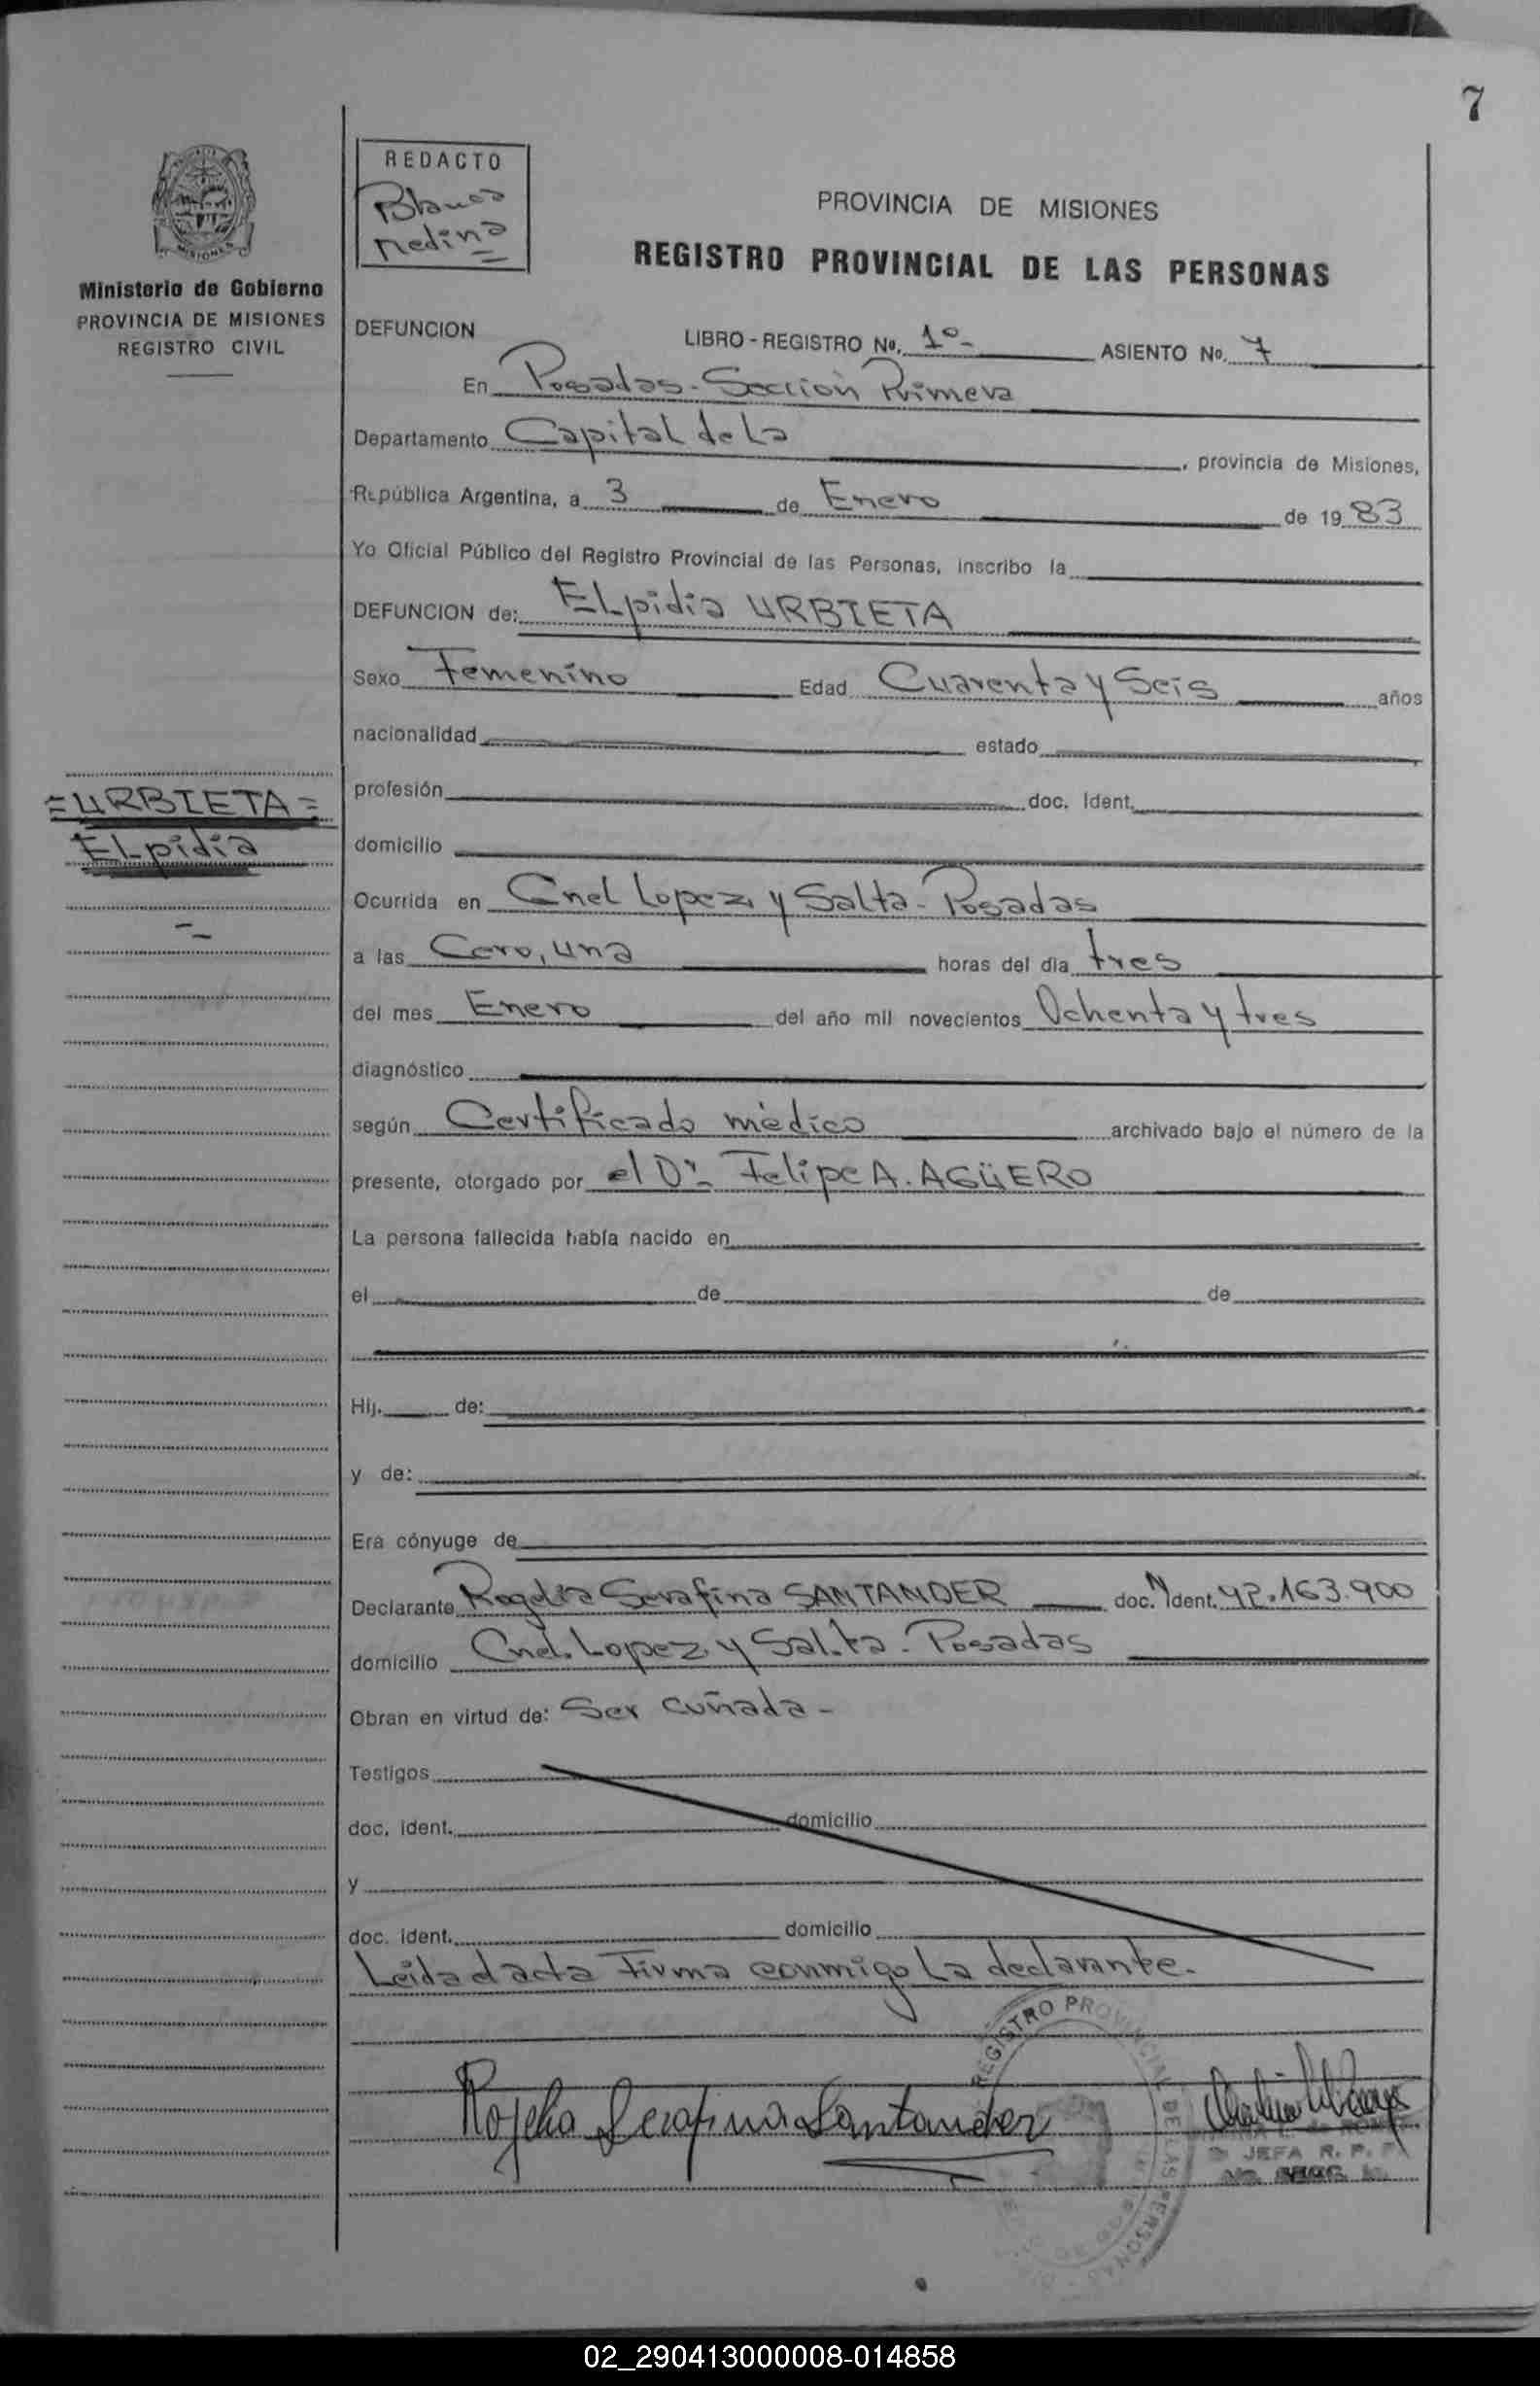 7
REDACTO
Blanca
Medina
MISIONES
Ministerio de Gobierno
PROVINCIA DE MISIONES
REGISTRO CIVIL
PROVINCIA DE MISIONES
REGISTRO PROVINCIAL DE LAS PERSONAS
DEFUNCION LIBRO - REGISTRO No. 1º- ASIENTO No. 7
En Posadas - Sección Primera
Departamento Capital de La , provincia de Misiones,
República Argentina, a 3 de Enero de 19 83
Yo Oficial Público del Registro Provincial de las Personas, inscribo la
DEFUNCION de: ELpidia URBIETA
Sexo Femenino Edad Cuarenta y Seis años
nacionalidad estado
profesión doc. Ident.
=URBIETA=
ELpidia
domicilio
Ocurrida en Cnel Lopez y Salta - Posadas
a las Cero, una horas del día tres
del mes Enero del año mil novecientos Ochenta y tres
diagnóstico
según Certificado médico archivado bajo el número de la
presente, otorgado por el Dr- Felipe A. AGÜERO
La persona fallecida había nacido en
el de de
Hij. de:
y de:
Era cónyuge de
Declarante Rogelia Serafina SANTANDER doc. Ident. 92.163.900
domicilio Cnel. Lopez y Salta - Posadas
Obran en virtud de: Ser cuñada -
Testigos
doc. ident. domicilio
y
doc. ident. domicilio
Leida el acta Firma conmigo La declarante.
REGISTRO PROVINCIAL DE LAS PERSONAS
Rogelia Serafina Santander
JEFA R. P. P.
02_290413000008-014858